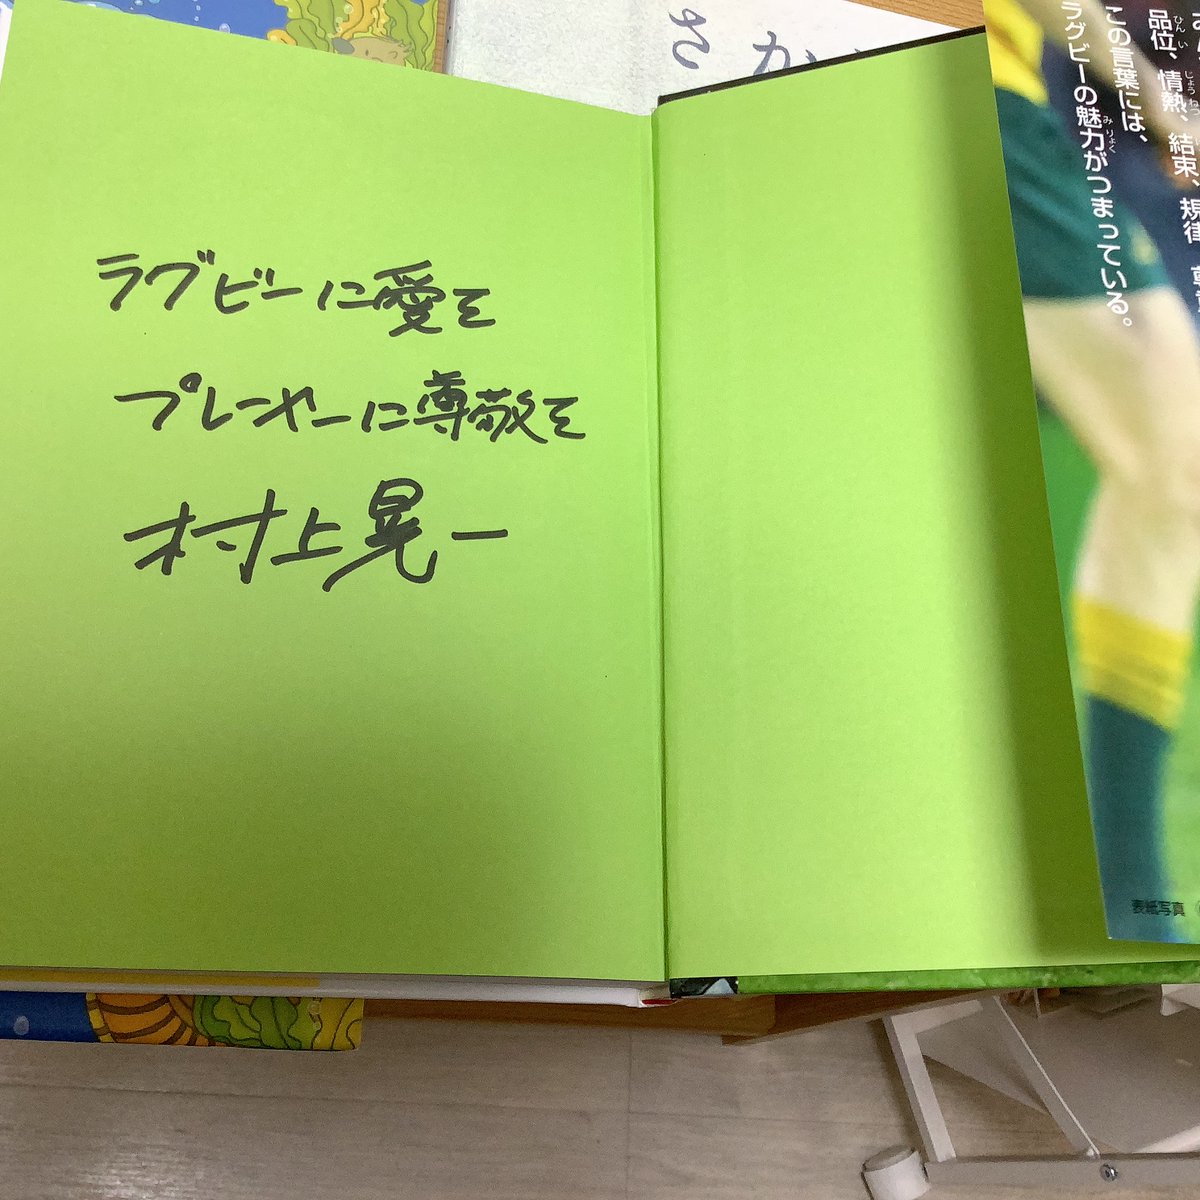 ラグビーに愛を
プレーヤーに尊敬を
村上晃一
品位、情熱、結束、規律
この言葉には、
ラグビーの魅力がつまっている。
表紙写真
さか